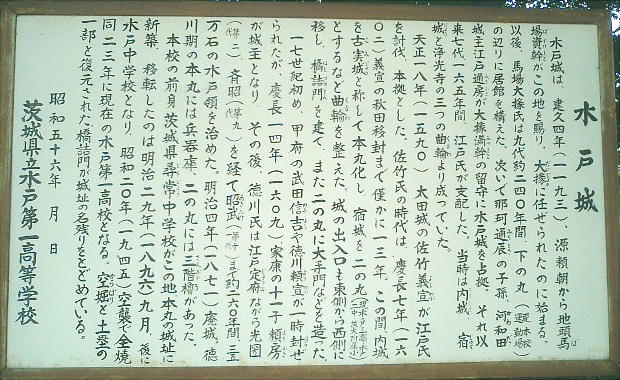 水戸城
水戸城は、建久四年(一一九三)、源頼朝から地頭馬
場資幹がこの地を賜り、大掾に任ぜられたのに始まる。
以後、馬場大掾氏は九代約二四〇年間、下の丸
の辺りに居館を構えた。次いで那珂通辰の子孫、河和田
城主江戸通房が大掾満幹の留守に水戸城を占拠、それ以
来七代一六五年間、江戸氏が支配した。当時は内城、宿
城と浄光寺の三つの曲輪より成っていた。
天正一八年(一五九〇)太田城の佐竹義宣が江戸氏
を討伐、本拠とした。佐竹氏の時代は、慶長七年(一六
〇二)義宣の秋田移封まで僅かに一三年、この間内城
を古実城と称して本丸化し、宿城を二の丸
とするなど曲輪を整えた。城の出入口も東側から西側に
移し、橋詰門を建て、また二の丸に大手門などを造った。
一七世紀初め、甲府の武田信吉や徳川頼宣が一時封ぜ
られたが、慶長一四年(一六〇九)家康の十一子頼房
が城主となり、その後、徳川氏は江戸定府ながら光圀
(第二代)、斉昭(第九代)を経て昭武(第十一代)まで約二六〇年間三五
万石の水戸領を治めた。明治四年(一八七一)廃城、徳
川期の本丸には兵器庫、二の丸には三階櫓があった。
本校の前身、茨城県尋常中学校がこの地本丸の城址に
新築、移転したのは明治二九年(一八九六)九月、後に
水戸中学校となり、昭和二〇年(一九四五)空襲で全焼
同二三年に現在の水戸第一高校となる。空堀と土塁の
一部と復元された橋詰門が城址の名残りをとどめている。
昭和五十六年 月 日
茨城県立水戸第一高等学校